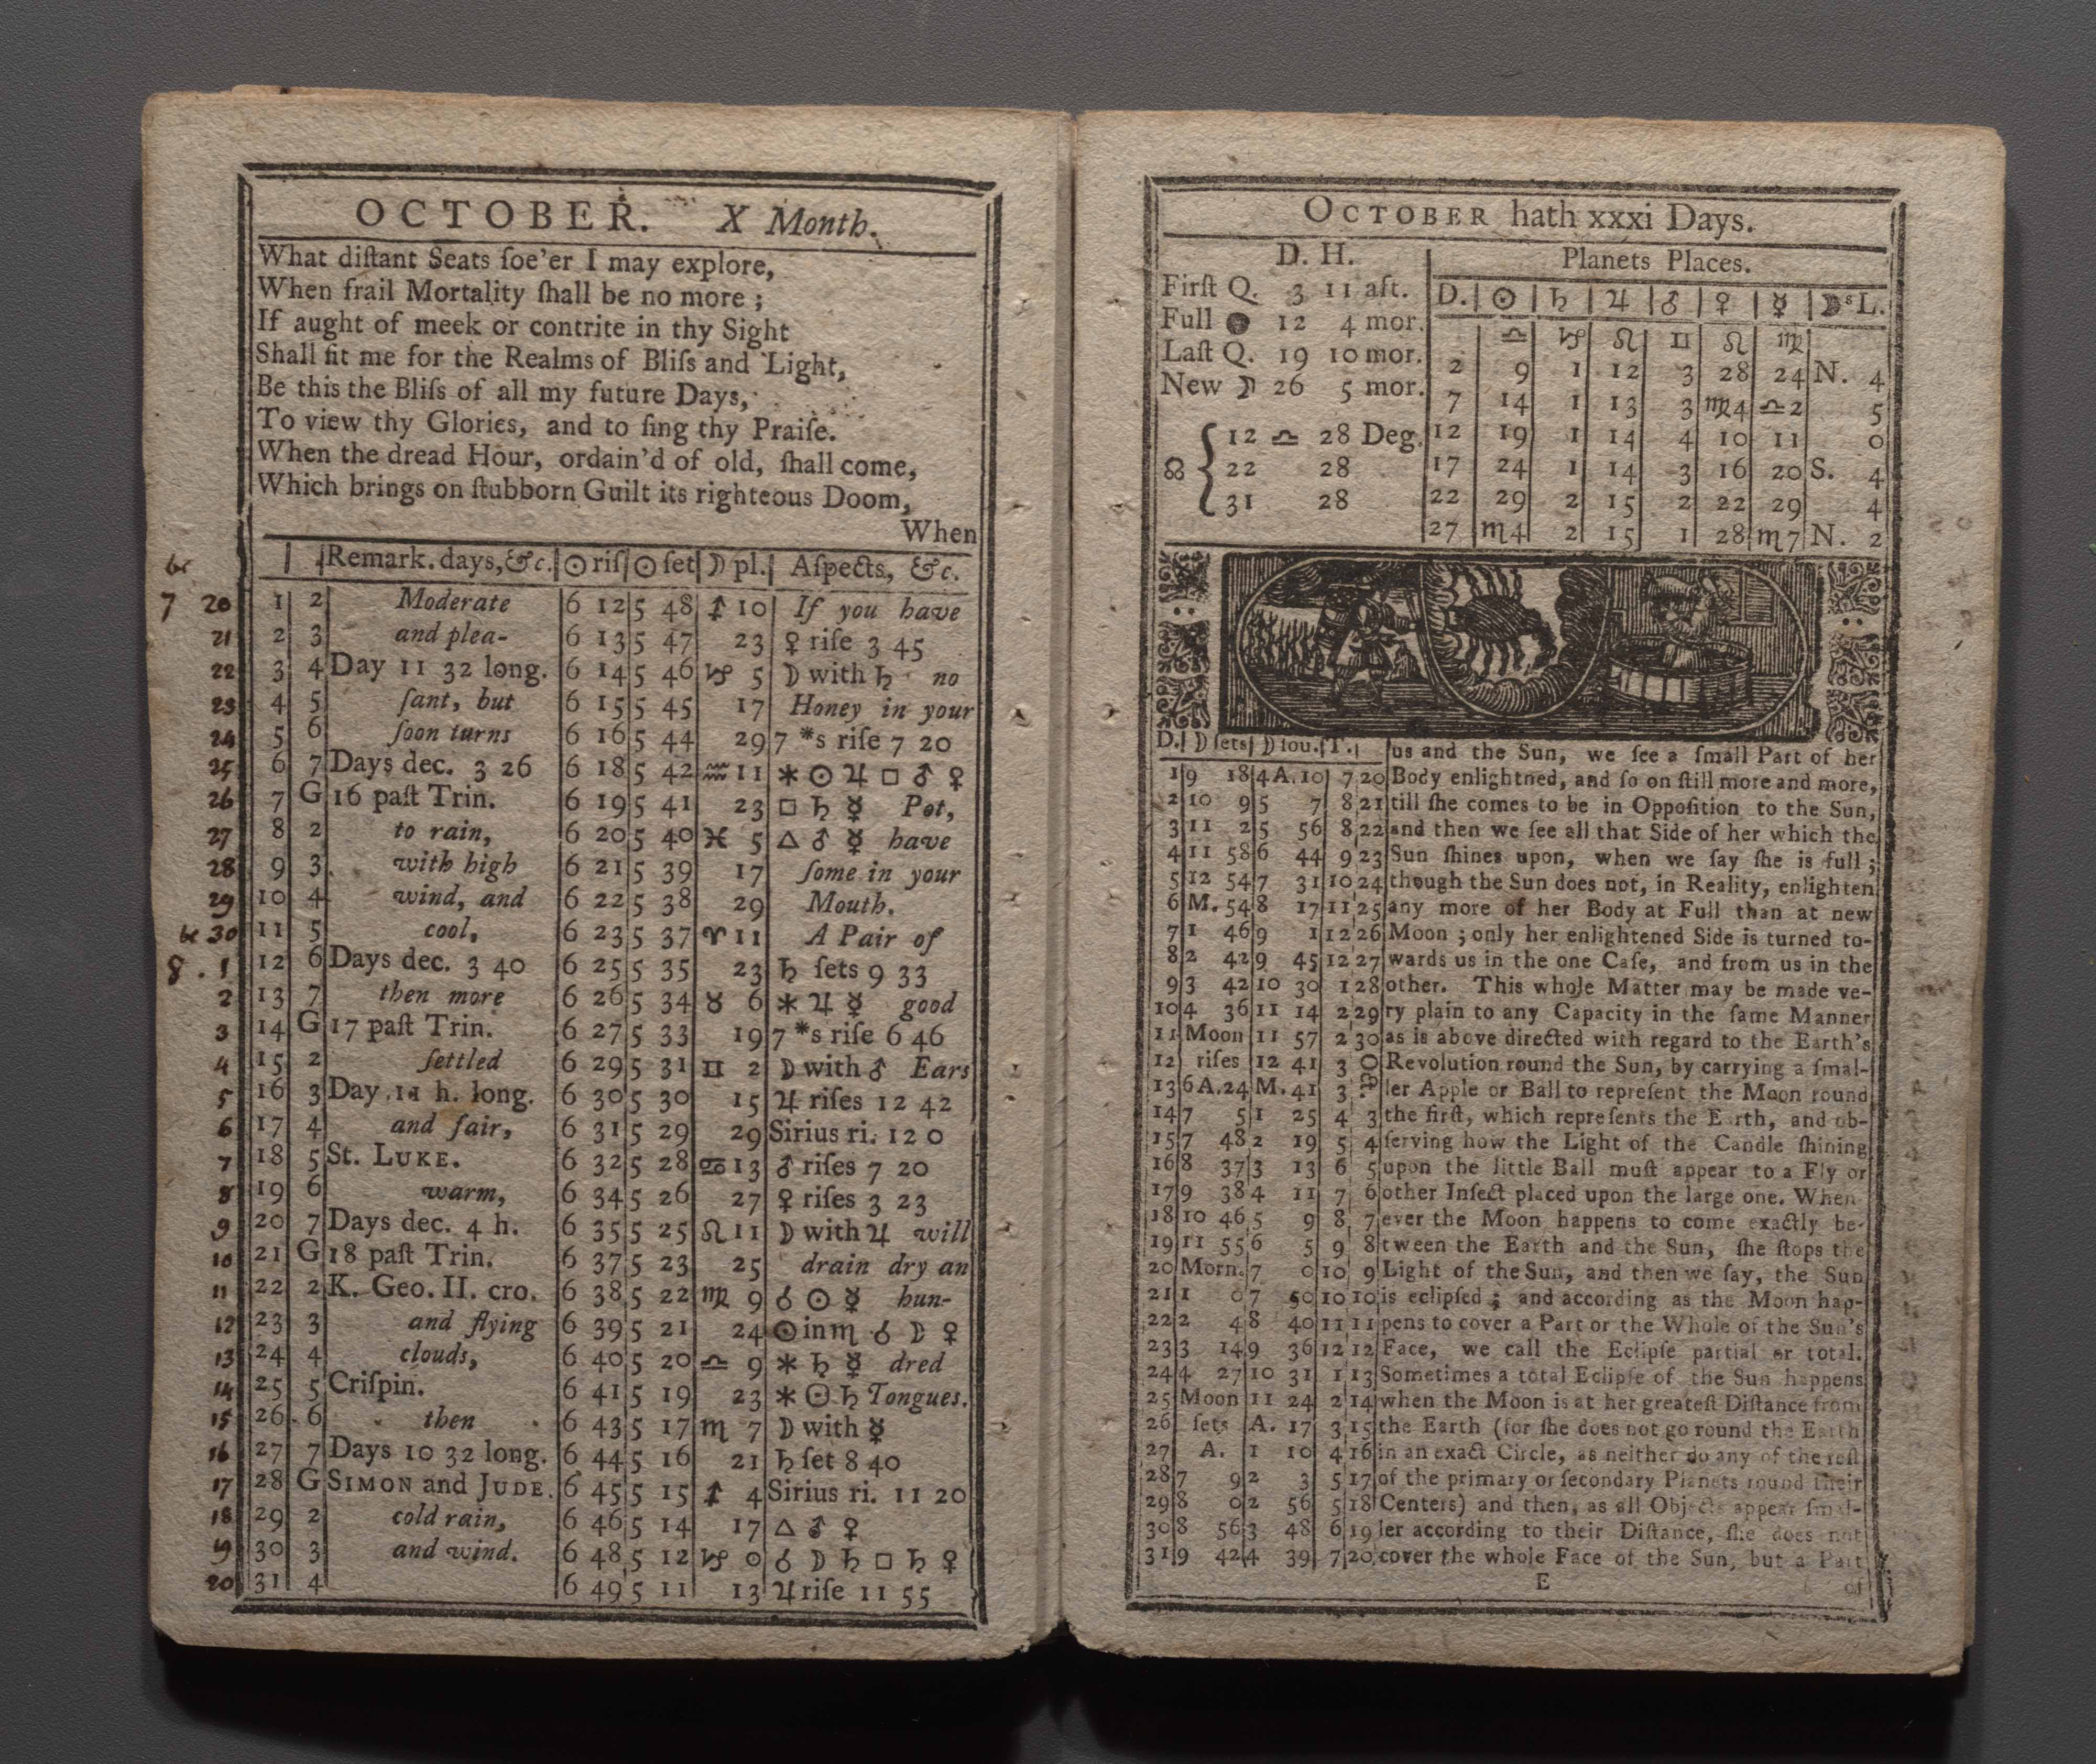 OCTOBER. X Month.
What diſtant Seats ſoe'er I may explore,
When frail Mortality ſhall be no more ;
If aught of meek or contrite in thy Sight
Shall fit me for the Realms of Bliſs and Light,
Be this the Bliſs of all my future Days,
To view thy Glories, and to ſing thy Praiſe.
When the dread Hour, ordain'd of old, ſhall come,
Which brings on ſtubborn Guilt its righteous Doom,
When
Remark. days, &c. ☉ riſ ☉ ſet ☽ pl. Aſpects, &c.
7 20 1 2 Moderate 6 12 5 48 ♐ 10 If you have
21 2 3 and plea- 6 13 5 47 23 ♀ riſe 3 45
22 3 4 Day 11 32 long. 6 14 5 46 ♑ 5 ☽ with ♄ no
23 4 5 ſant, but 6 15 5 45 17 Honey in your
24 5 6 ſoon turns 6 16 5 44 29 7 *s riſe 7 20
25 6 7 Days dec. 3 26 6 18 5 42 ♒ 11 ⚹ ☉ ♃ □ ♂ ♀
26 7 G 16 paſt Trin. 6 19 5 41 23 □ ♄ ☿ Pot,
27 8 2 to rain, 6 20 5 40 ♓ 5 △ ♂ ☿ have
28 9 3 with high 6 21 5 39 17 ſome in your
29 10 4 wind, and 6 22 5 38 29 Mouth.
30 11 5 cool, 6 23 5 37 ♈ 11 A Pair of
8 . 1 12 6 Days dec. 3 40 6 25 5 35 23 ♄ ſets 9 33
2 13 7 then more 6 26 5 34 ♉ 6 ⚹ ♃ ☿ good
3 14 G 17 paſt Trin. 6 27 5 33 19 7 *s riſe 6 46
4 15 2 ſettled 6 29 5 31 ♊ 2 ☽ with ♂ Ears
5 16 3 Day 11 h. long. 6 30 5 30 15 ♃ riſes 12 42
6 17 4 and fair, 6 31 5 29 29 Sirius ri. 12 0
7 18 5 St. LUKE. 6 32 5 28 ♋ 13 ♂ riſes 7 20
8 19 6 warm, 6 34 5 26 27 ♀ riſes 3 23
9 20 7 Days dec. 4 h. 6 35 5 25 ♌ 11 ☽ with ♃ will
10 21 G 18 paſt Trin. 6 37 5 23 25 drain dry an
11 22 2 K. Geo. II. cro. 6 38 5 22 ♍ 9 ☌ ☉ ☿ hun-
12 23 3 and flying 6 39 5 21 24 ☉ in ♏ ☌ ☽ ♀
13 24 4 clouds, 6 40 5 20 ♎ 9 ⚹ ♄ ☿ dred
14 25 5 Criſpin. 6 41 5 19 23 ⚹ ☉ ♄ Tongues.
15 26 6 then 6 43 5 17 ♏ 7 ☽ with ☿
16 27 7 Days 10 32 long. 6 44 5 16 21 ♄ ſet 8 40
17 28 G SIMON and JUDE. 6 45 5 15 ♐ 4 Sirius ri. 11 20
18 29 2 cold rain, 6 46 5 14 17 △ ♂ ♀
19 30 3 and wind. 6 48 5 12 ♑ 0 ☌ ☽ ♄ □ ♄ ♀
20 31 4 6 49 5 11 13 ♃ riſe 11 55
OCTOBER hath xxxi Days.
D. H.
Firſt Q. 3 11 aft.
Full ● 12 4 mor.
Laſt Q. 19 10 mor.
New ☽ 26 5 mor.
☊ { 12 ♎ 28 Deg.
22 28
31 28
Planets Places.
D. ☉ ♄ ♃ ♂ ♀ ☿ ☽s L.
♎ ♑ ♌ ♊ ♌ ♍
2 9 1 12 3 28 24 N. 4
7 14 1 13 3 ♍4 ♎2 5
12 19 1 14 4 10 11 0
17 24 1 14 3 16 20 S. 4
22 29 2 15 2 22 29 4
27 ♏4 2 15 1 28 ♏7 N. 2
D. ☽ ſets ☽ ſou. T. us and the Sun, we ſee a ſmall Part of her
1 9 18 4 A. 10 7 20 Body enlightned, and ſo on ſtill more and more,
2 10 9 5 7 8 21 till ſhe comes to be in Oppoſition to the Sun,
3 11 2 5 56 8 22 and then we ſee all that Side of her which the
4 11 58 6 44 9 23 Sun ſhines upon, when we ſay ſhe is full ;
5 12 54 7 31 10 24 though the Sun does not, in Reality, enlighten
6 M. 54 8 17 11 25 any more of her Body at Full than at new
7 1 46 9 1 12 26 Moon ; only her enlightened Side is turned to-
8 2 42 9 45 12 27 wards us in the one Caſe, and from us in the
9 3 42 10 30 1 28 other. This whole Matter may be made ve-
10 4 36 11 14 2 29 ry plain to any Capacity in the ſame Manner
11 Moon 11 57 2 30 as is above directed with regard to the Earth's
12 riſes 12 41 3 Oct. Revolution round the Sun, by carrying a ſmal-
13 6 A. 24 M. 41 3 ler Apple or Ball to repreſent the Moon round
14 7 5 1 25 4 3 the firſt, which repreſents the Earth, and ob-
15 7 48 2 19 5 4 ſerving how the Light of the Candle ſhining
16 8 37 3 13 6 5 upon the little Ball muſt appear to a Fly or
17 9 38 4 11 7 6 other Inſect placed upon the large one. When-
18 10 46 5 9 8 7 ever the Moon happens to come exactly be-
19 11 55 6 5 9 8 tween the Earth and the Sun, ſhe ſtops the
20 Morn. 7 0 10 9 Light of the Sun, and then we ſay, the Sun
21 1 0 7 50 10 10 is eclipſed ; and according as the Moon hap-
22 2 4 8 40 11 11 pens to cover a Part or the Whole of the Sun's
23 3 14 9 36 12 12 Face, we call the Eclipſe partial or total.
24 4 27 10 31 1 13 Sometimes a total Eclipſe of the Sun happens
25 Moon 11 24 2 14 when the Moon is at her greateſt Diſtance from
26 ſets A. 17 3 15 the Earth (for ſhe does not go round the Earth
27 A. 1 10 4 16 in an exact Circle, as neither do any of the reſt
28 7 9 2 3 5 17 of the primary or ſecondary Planets round their
29 8 0 2 56 5 18 Centers) and then, as all Objects appear ſmal-
30 8 56 3 48 6 19 ler according to their Diſtance, ſhe does not
31 9 42 4 39 7 20 cover the whole Face of the Sun, but a Part
E of